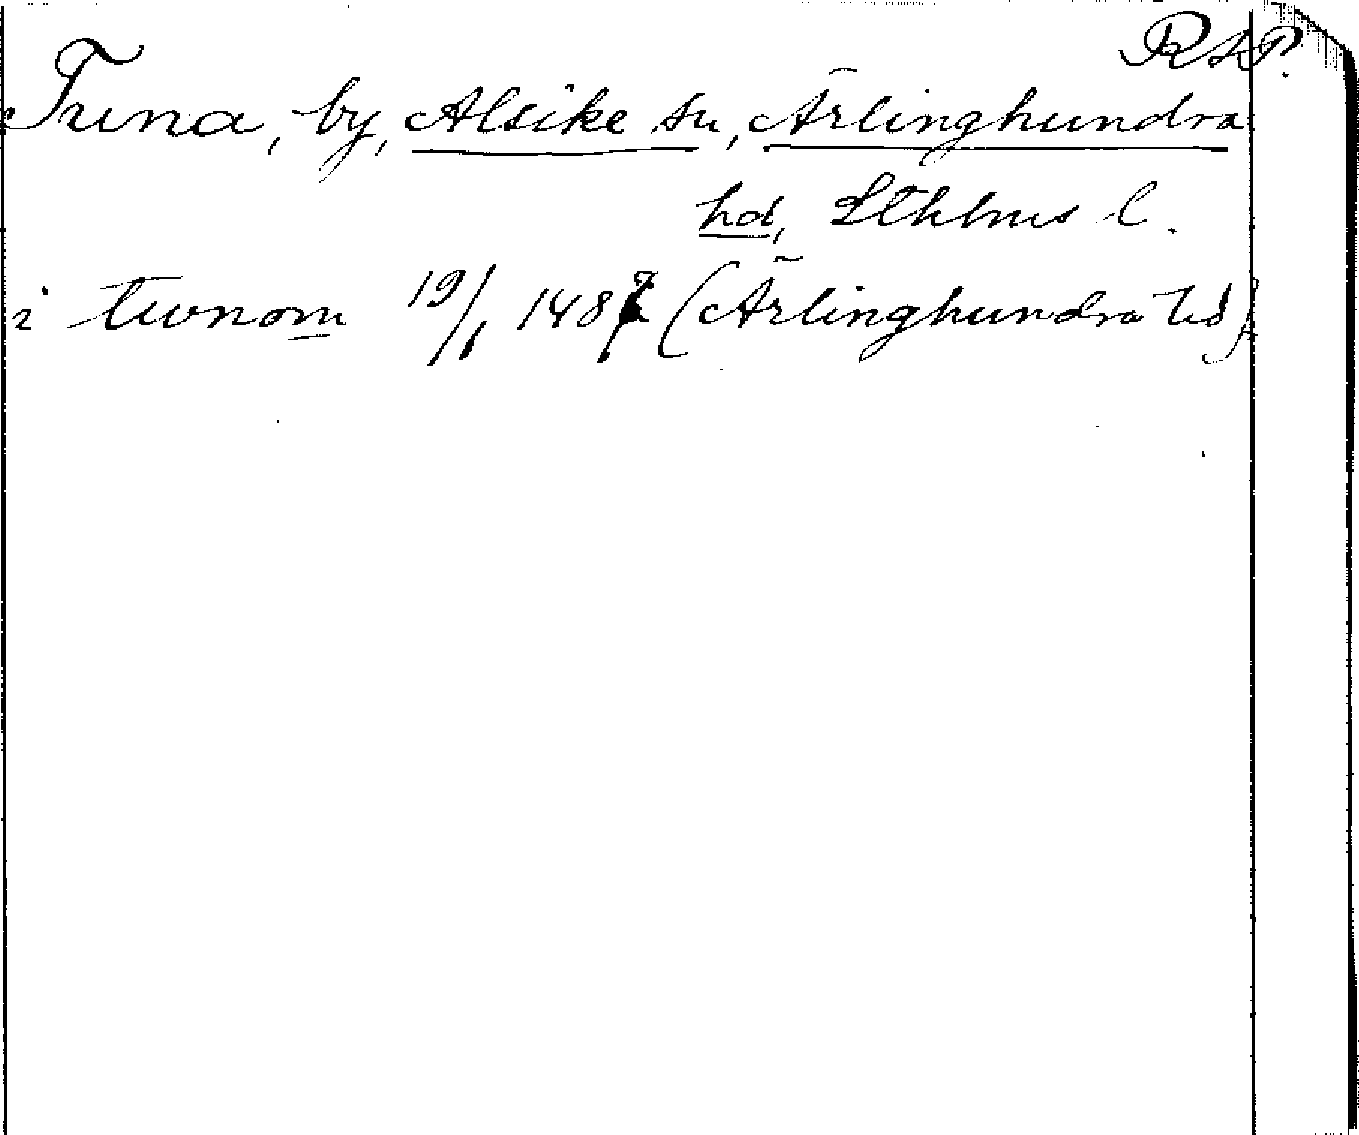 RAP.
Tuna, by, Alsike sn, Ärlinghundra
hd, Sthlms l.
i twnom 19/1 1487 (Ärlinghundra hd)